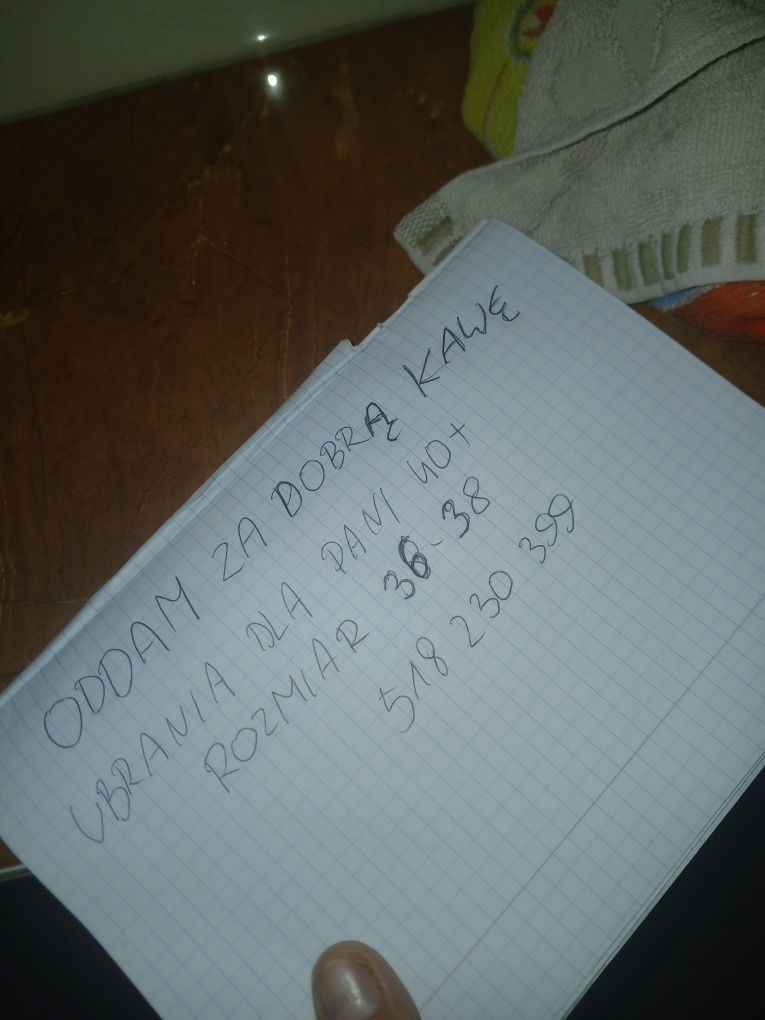 ODDAM ZA DOBRĄ KAWĘ
UBRANIA DLA PANI 40+
ROZMIAR 36-38
518 230 399